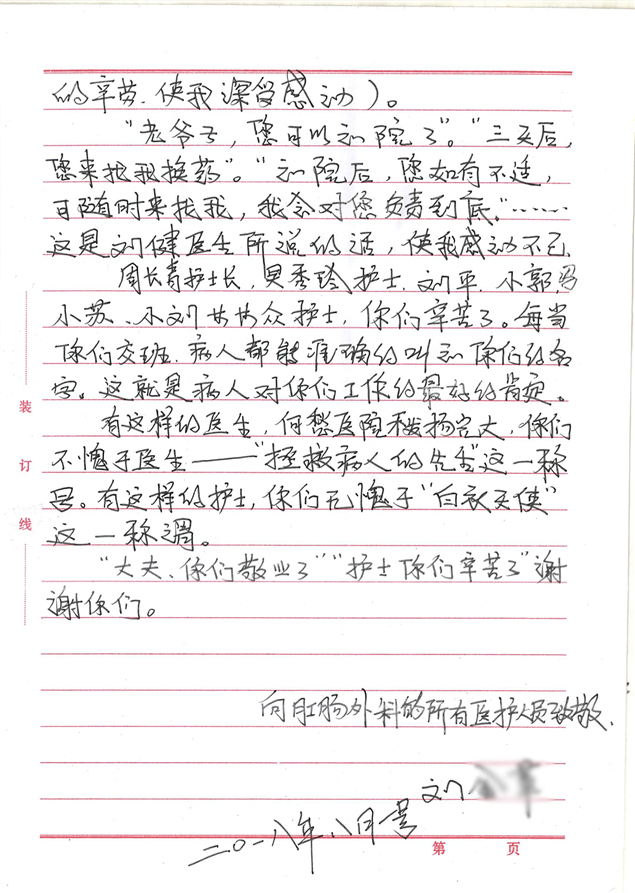 的辛劳、使我深受感动）。
“老爷子，您可以出院了”。“三天后，
您来找我换药”。“出院后，您如有不适，
可随时来找我，我会对您负责到底。”……
这是刘健医生所说的话，使我感动不已
周长青护士长，吴秀玲护士、刘平、小郭、冯
小苏、小刘 众护士，你们辛苦了。每当
你们交班、病人都能准确的叫出你们的名
字。这就是病人对你们工作的最好的肯定。
有这样的医生，何愁医院不发扬光大，你们
不愧于医生——“拯救病人的先生”这一称
号。有这样的护士，你们无愧于“白衣天使”
这一称谓。
“大夫、你们敬业了”“护士你们辛苦了”谢
谢你们。
向肛肠外科的所有医护人员致敬、
刘
二〇一八年八月
装
订
线
第 页